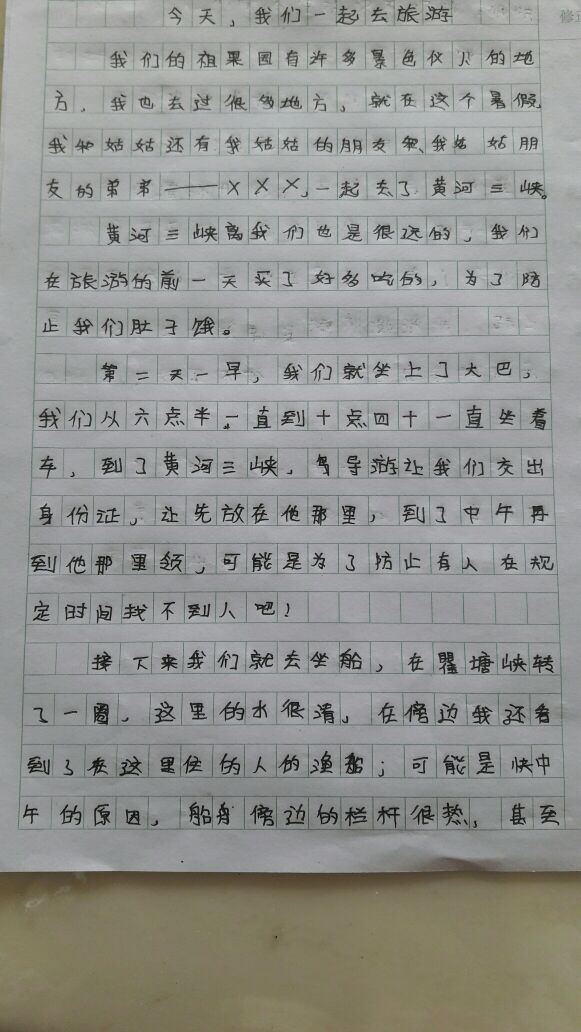 今天，我们一起去旅游
我们的祖国有许多景色仪人的地
方，我也去过很多地方，就在这个暑假
我和姑姑还有我姑姑的朋友和我姑姑朋
友的弟弟——XXX，一起去了黄河三峡。
黄河三峡离我们也是很远的，我们
在旅游的前一天买了好多吃的，为了防
止我们肚子饿。
第二天一早，我们就坐上了大巴，
我们从六点半，直到十点四十一直坐着
车，到了黄河三峡，导游让我们交出
身份证，让先放在他那里，到了中午再
到他那里领，可能是为了防止有人在规
定时间找不到人吧！
接下来我们就去坐船，在瞿塘峡转
了一圈，这里的水很清，在傍边我还看
到了在这里住的人的渔船；可能是快中
午的原因，船傍边的栏杆很热，甚至